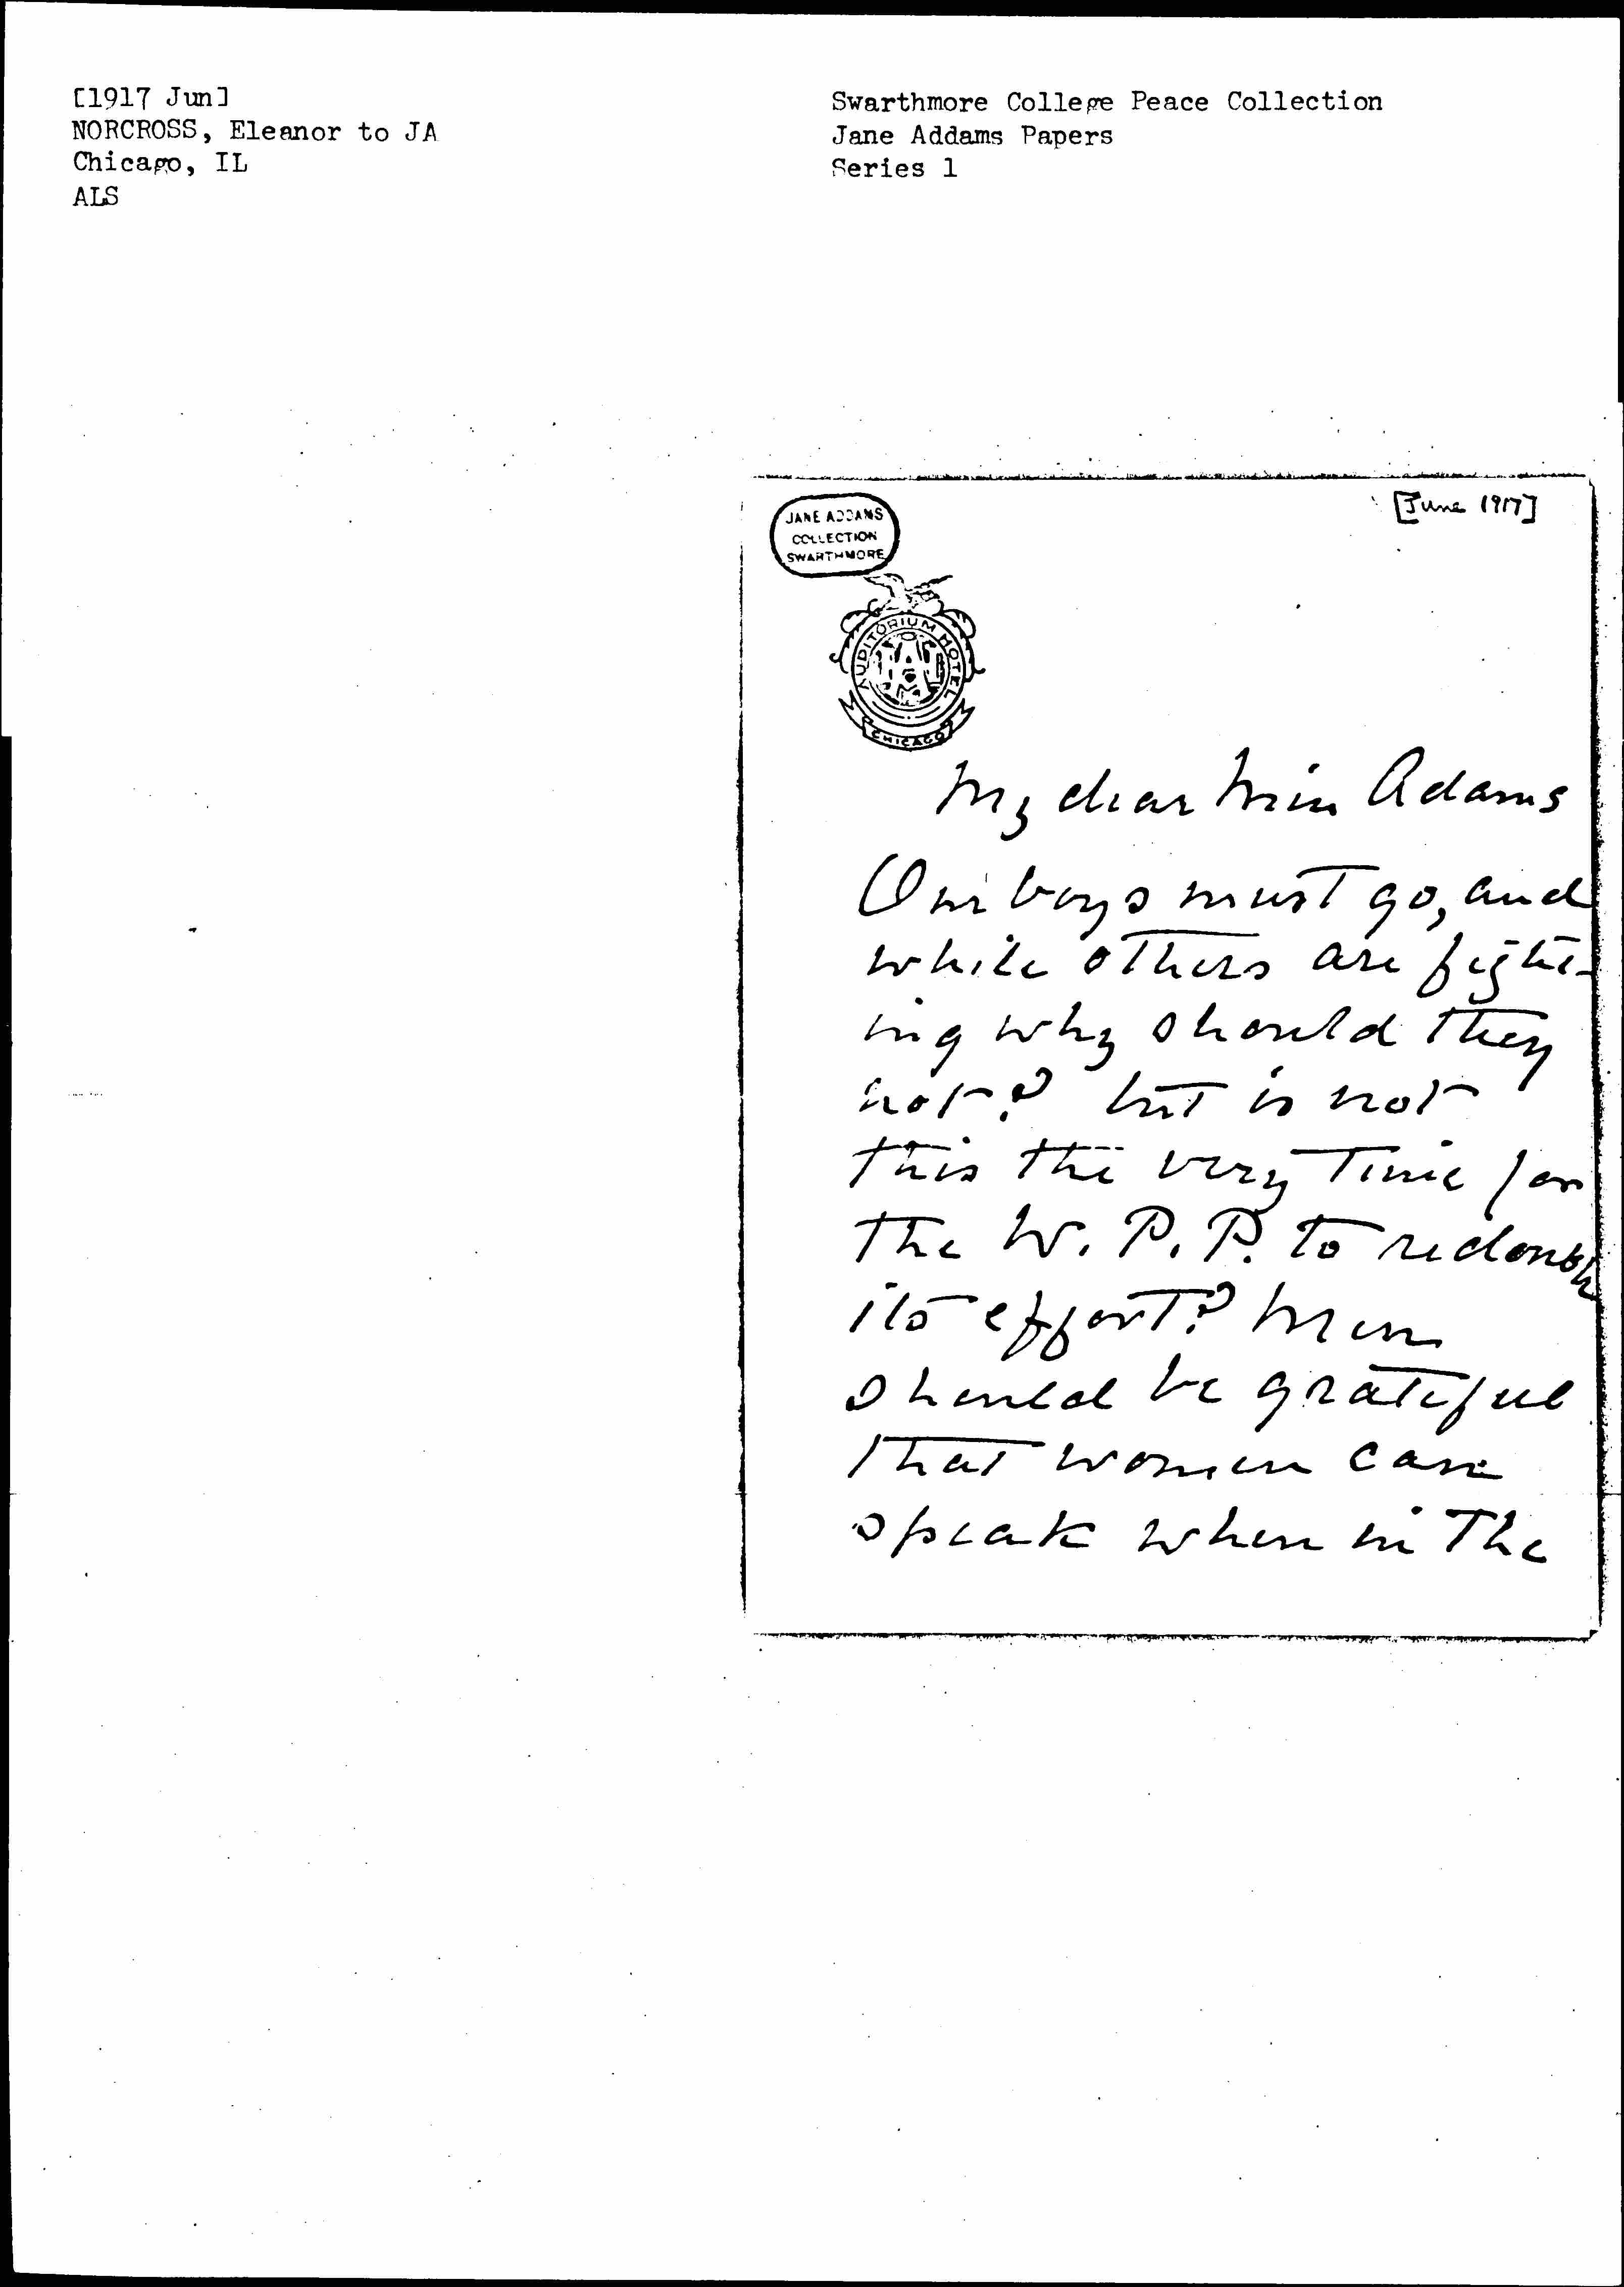 [1917 Jun]
NORCROSS, Eleanor to JA
Chicago, IL
ALS
Swarthmore College Peace Collection
Jane Addams Papers
Series 1
JANE ADDAMS
COLLECTION
SWARTHMORE
[June 1917]
AUDITORIUM HOTEL
CHICAGO
My dear Miss Adams
Our boys must go, and
while others are fight-
ing why should they
not? but is not
this the very time for
the W. P. P. to redouble
its effort? Men
should be grateful
that women can
speak when in the